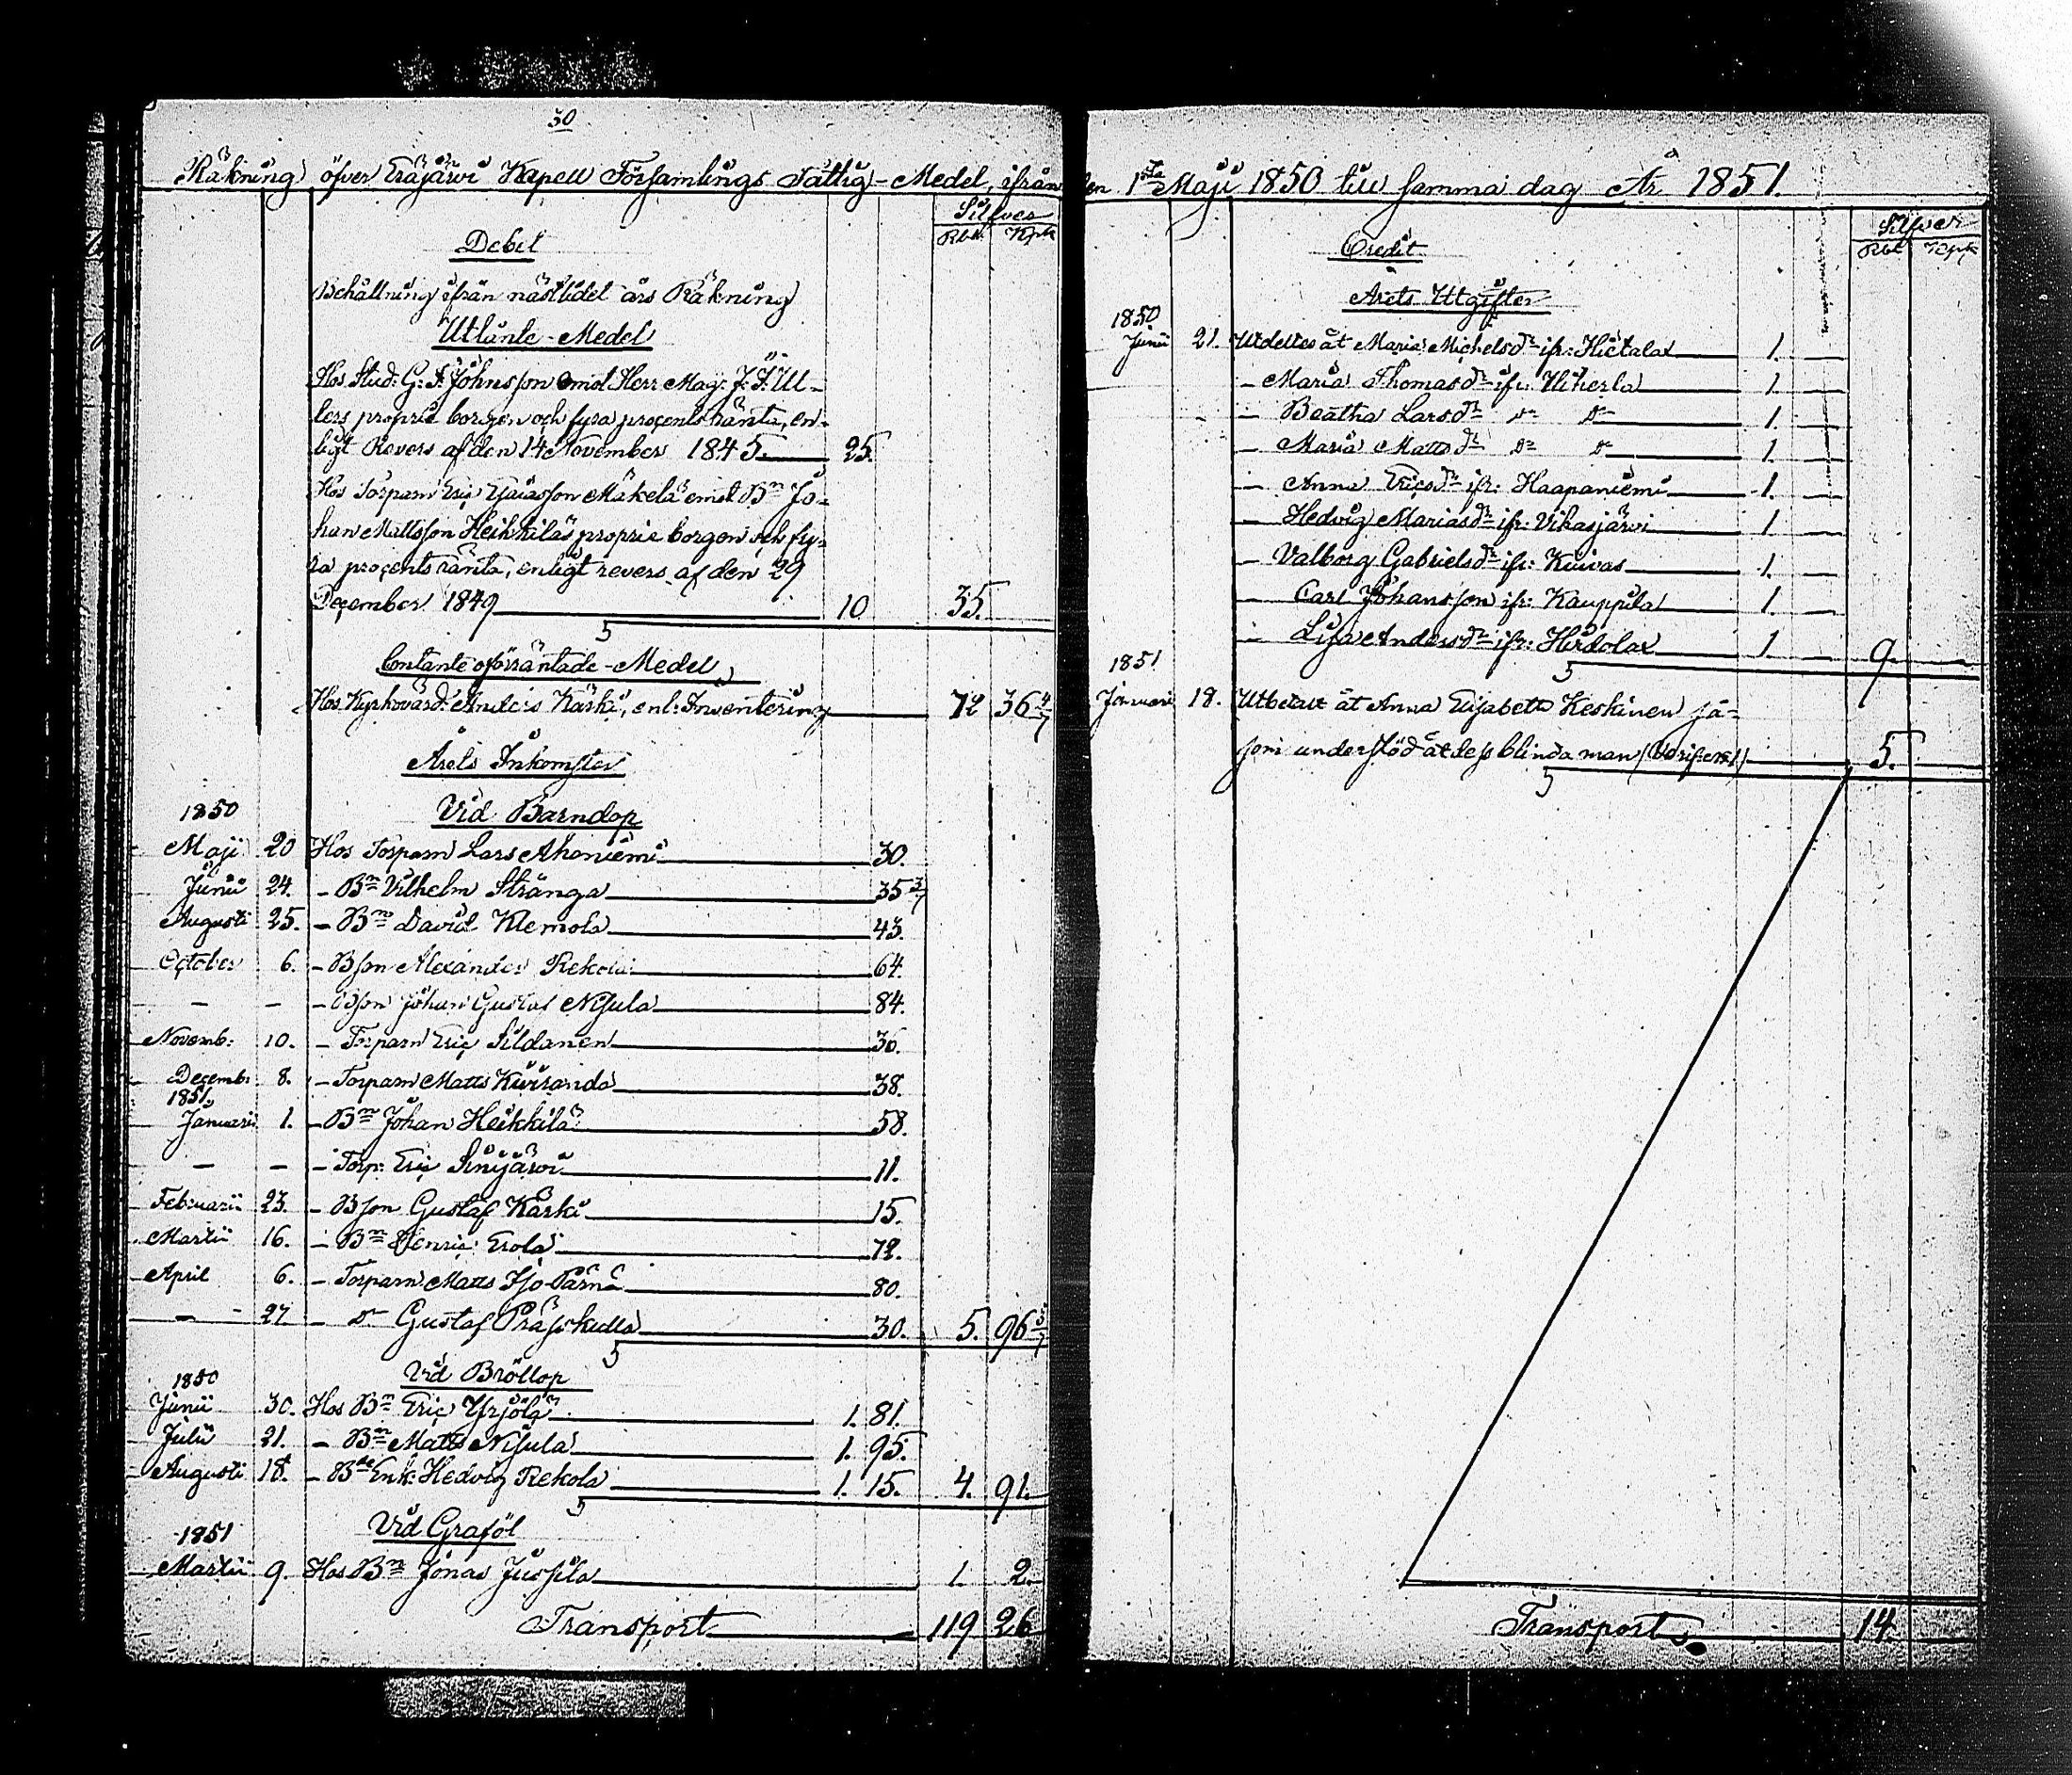 30
Räkning öfver Eräjärvi Kapell Församlings Fattig-Medel, ifrån den 1sta Maji 1850 till samma dag År 1851.
Silfver
Rbl. Kpk
Debet
Behållning ifrån nästlidet års Räkning
Utlånte-Medel
Hos Stud. G. F. Johnsson emot Herr Mag. J. F. Ul-
lers proprie borgen och fyra procents ränta, en-
ligt Revers af den 14 November 1845. 25.
Hos Torparn Eric Esaiasson Mäkelä emot Bn Jo-
han Mattsson Heikkiläs proprie borgen och fy-
ra procents ränta, enligt revers af den 29
December 1849 10 35.
Contante oförräntade-Medel
Hos Kyrkovärd: Anders Kärki, enl: Inventering 72 36 4/7
Årets Inkomster
1850 Vid Barndop
Maji 20 Hos Torparn Lars Ahoniemi 30.
Junii 24. - Bn Vilhelm Stränga 35 3/7
Augusti 25. - Bn David Klemola 43.
October 6. - Bson Alexander Rekola 64.
- - - Bson Johan Gustaf Nisula 84.
Novemb: 10. - Torparn Eric Sildanen 36.
Decemb: 8. - Torparn Matts Kuiranda 38.
1851.
Januarii 1. - Bn Johan Heikkilä 58.
- - - Torp: Eric Sinijärvi 11.
Februarii 23. - Bson Gustaf Kärki 15.
Martii 16. - Bn Henric Erola 72.
April 6. - Torparn Matts Iso-Pärnä 80.
- 27 - Do Gustaf Prässkulla 30. 5. 96 3/7
1850 Vid Bröllop
Junii 30. Hos Bn Eric Yrjölä 1. 81.
Julii 21. - Bn Matts Nisula 1. 95.
Augusti 18. - Bde Enk: Hedvig Rekola 1. 15. 4. 91.
1851 Vid Graföl
Martii 9. Hos Bn Jonas Jussila 1. 2.
Transport 119 26
Silfver
Rbl Kpk
Credit
Årets Utgifter
1850
Junii 21. Utdeltes åt Maria Michelsdr ifr: Hietala 1.
- Maria Thomasdr ifr: Uiherla 1
- Beatha Larsdr Do Do 1.
- Maria Mattsdr Do Do 1.
- Anna Ericsdr ifr: Haapaniemi 1.
- Hedvig Mariasdr ifr: Vihasjärvi 1
- Valborg Gabrielsdr ifr: Kuivas 1.
- Carl Johansson ifr: Kauppila 1
- Lisa Andersdr ifr: Hirdola 1 9.
1851
Januarii 18. Utbetalt åt Anna Elisabeth Keskinen så-
som understöd åt dess blinda man (Verif: N 1) 5.
Transport 14